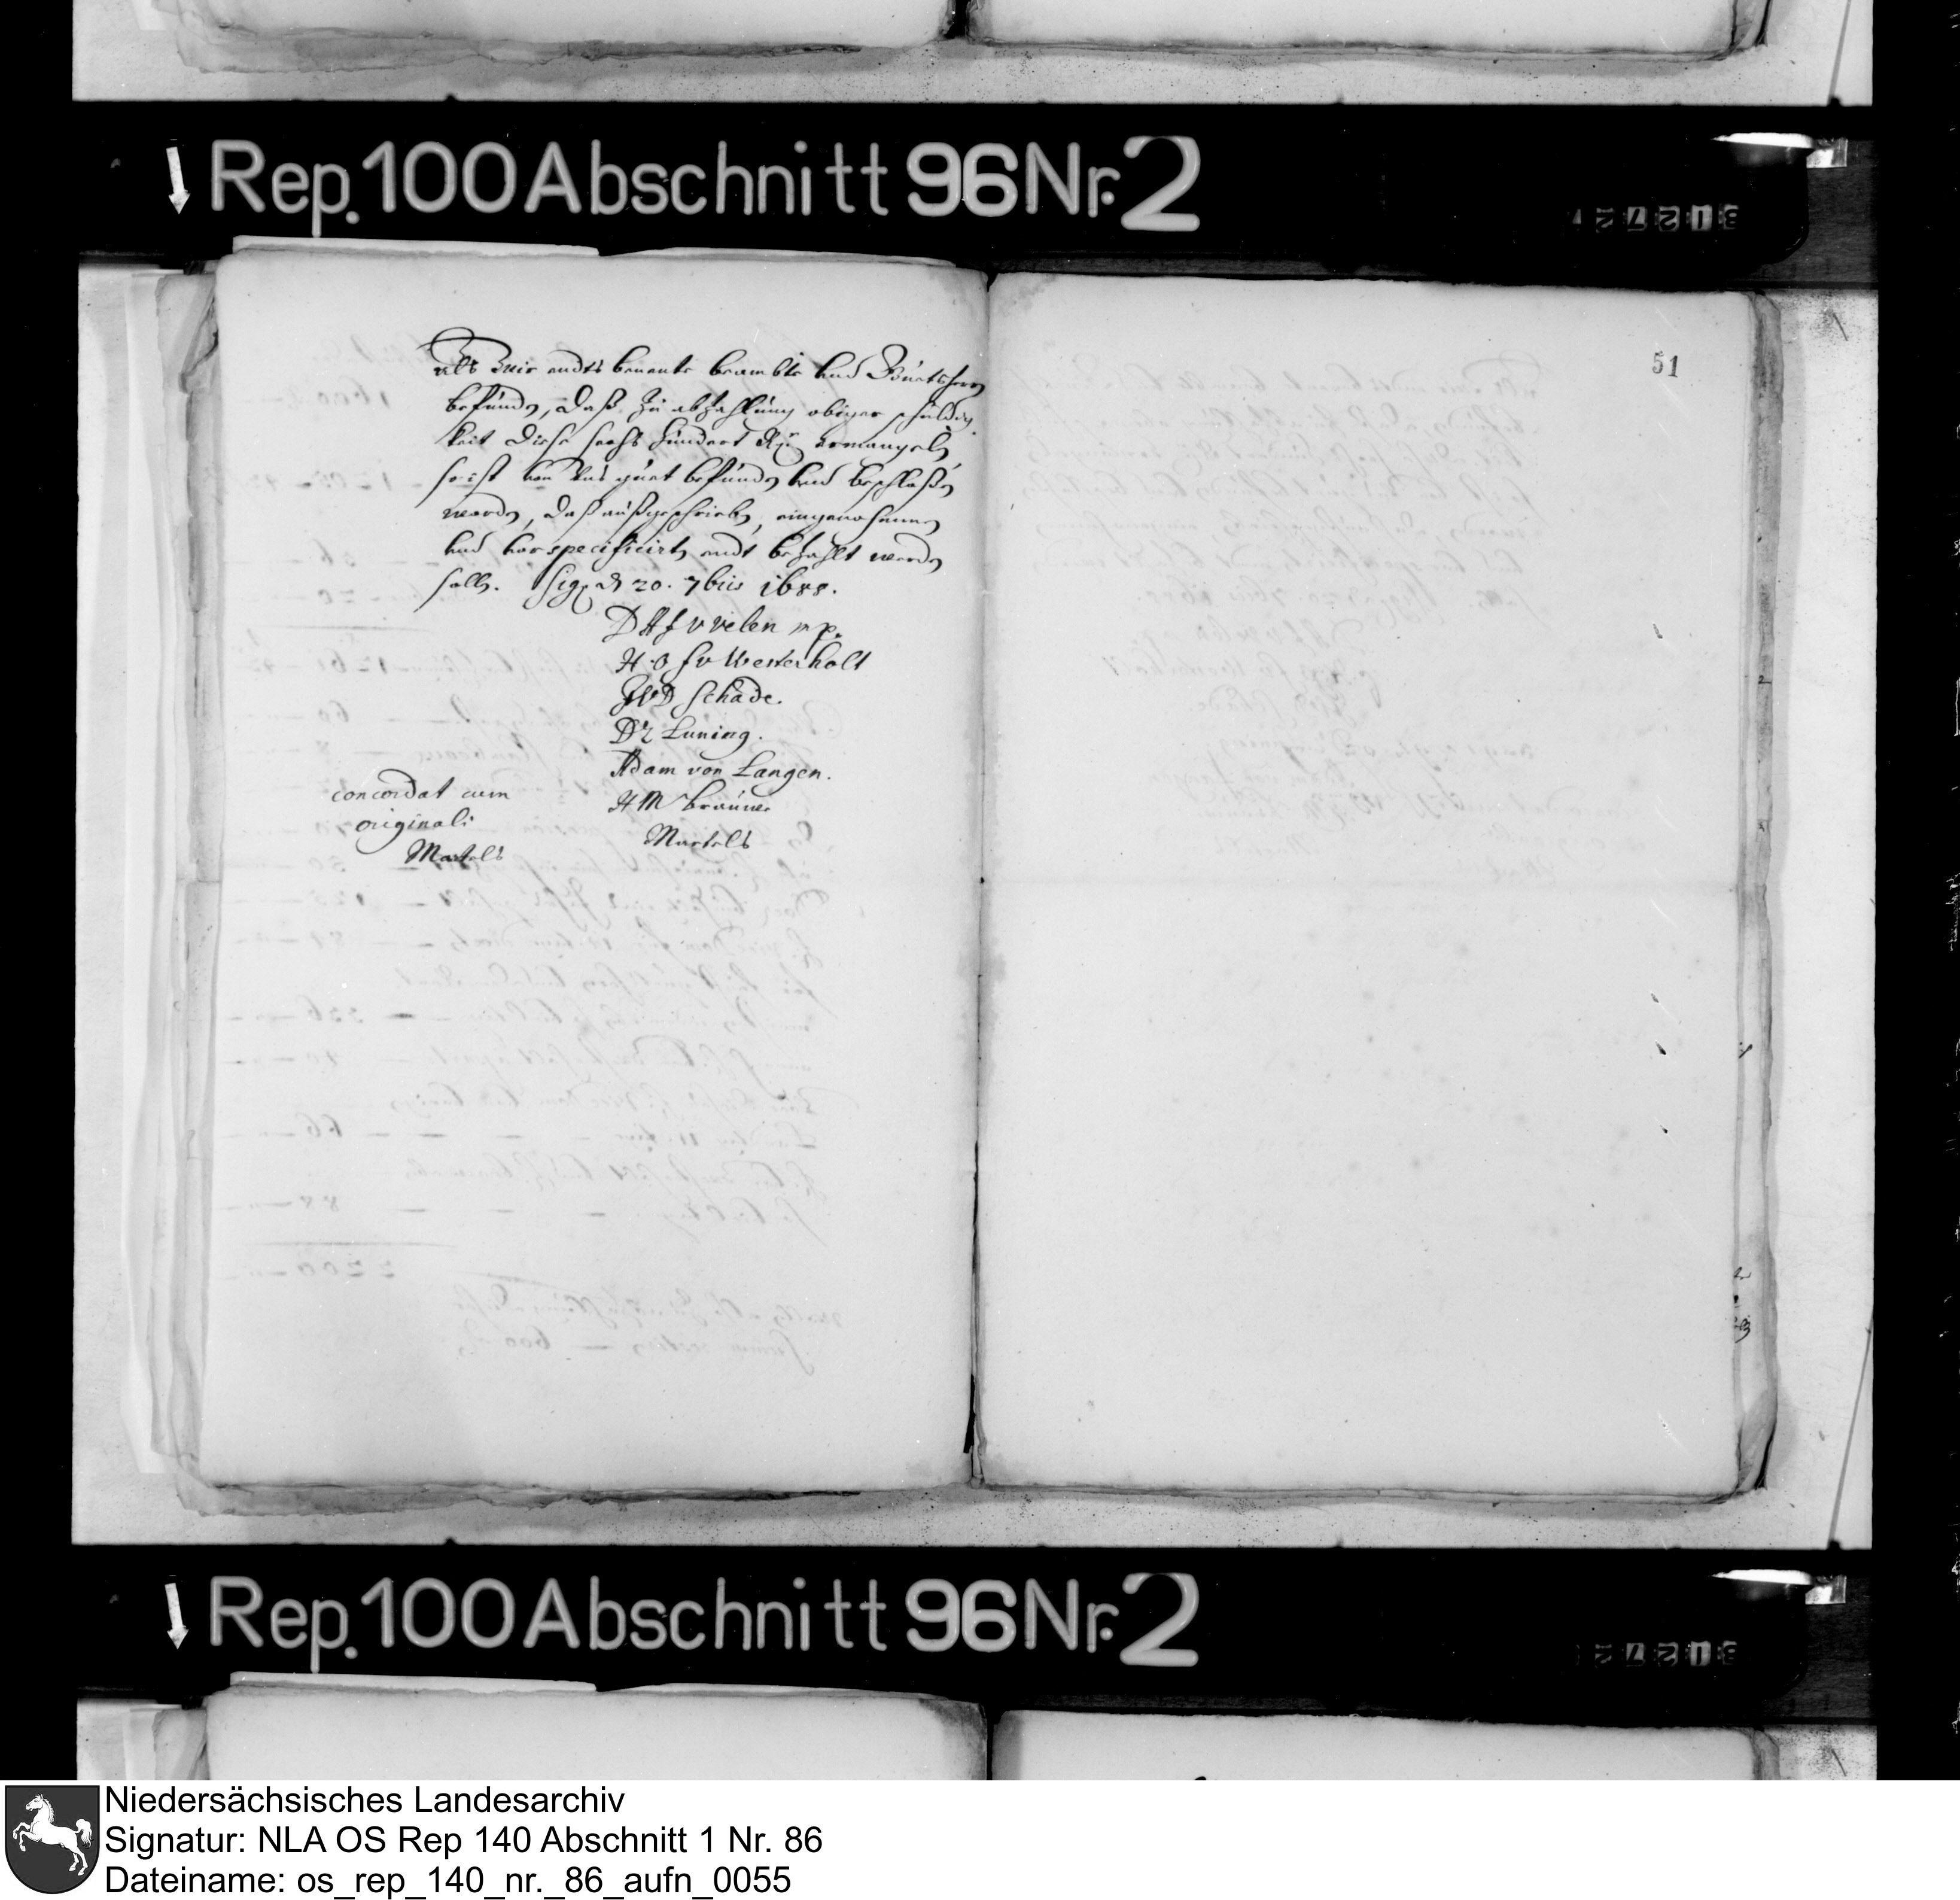 Rep. 100 Abschnitt 96 Nr. 2
31272
51
Als Wir endts benente beambte und Guetsherrn
befunden, daß zu abzahlung obiger schuldig
keit diese sechs hundert Rthr ermangeln,
so ist von uns guet befunden und beschloßen
worden, daß außgeschrieben, eingenohmen
und vorspecificirten endt bezahlt werden
sollen. Sig. d 20. 7bris 1688.
D H f v velen mp.
H. O f v Westerholt
Schade.
Dr Luning.
Adam von Langen.
concordat cum
originali
Martels
H M brauner
Martels
Rep. 100 Abschnitt 96 Nr. 2
31272
Niedersächsisches Landesarchiv
Signatur: NLA OS Rep 140 Abschnitt 1 Nr. 86
Dateiname: os_rep_140_nr._86_aufn_0055